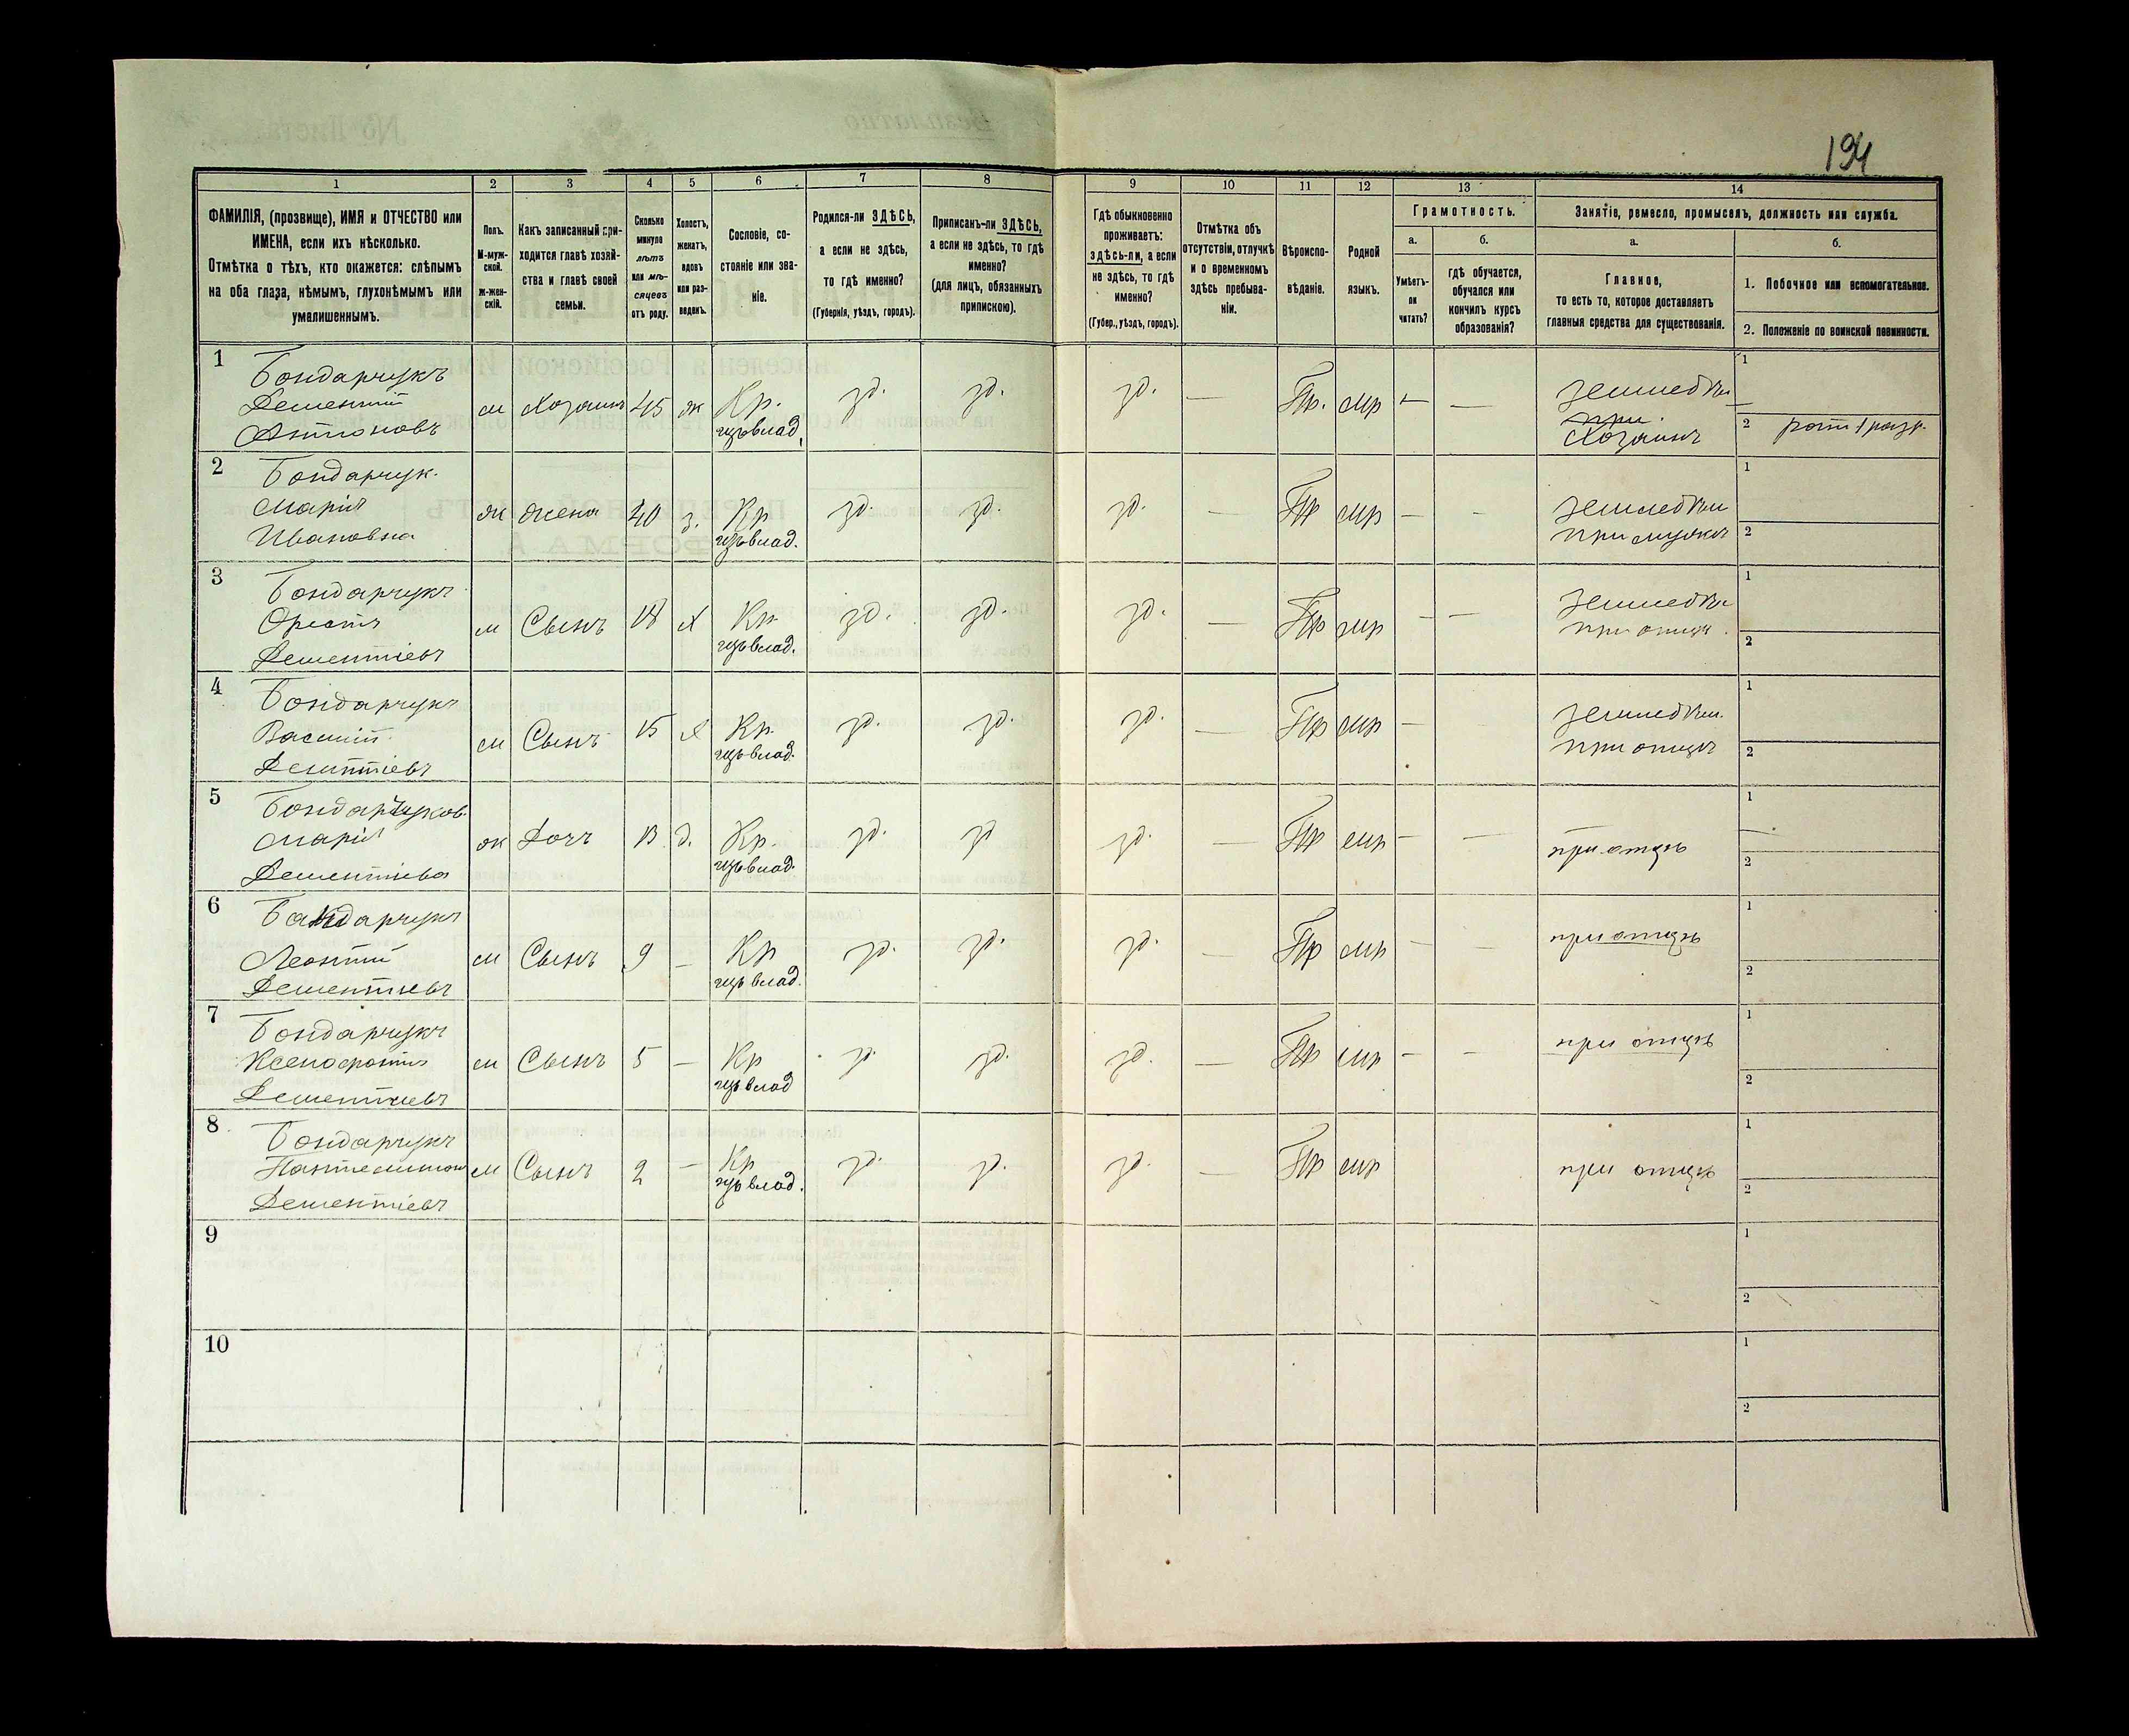 194
1 2 3 4 5 6 7 8 9 10 11 12 13 14
ФАМИЛІЯ, (прозвище), ИМЯ и ОТЧЕСТВО или
ИМЕНА, если ихъ нѣсколько.
Отмѣтка о тѣхъ, кто окажется: слѣпымъ
на оба глаза, нѣмымъ, глухонѣмымъ или
умалишеннымъ.
Полъ.
М-муж-
ской.
ж-жен-
скій.
Какъ записанный при-
ходится главѣ хозяй-
ства и главѣ своей
семьи.
Сколько
минуло
лѣтъ
или мѣ-
сяцевъ
отъ роду.
Холостъ,
женатъ,
вдовъ
или раз-
веденъ.
Сословіе, со-
стояніе или зва-
ніе.
Родился-ли ЗДѢСЬ,
а если не здѣсь,
то гдѣ именно?
(Губернія, уѣздъ, городъ).
Приписанъ-ли ЗДѢСЬ,
а если не здѣсь, то гдѣ
именно?
(для лицъ, обязанныхъ
припискою).
Гдѣ обыкновенно
проживаетъ:
здѣсь-ли, а если
не здѣсь, то гдѣ
именно?
(Губер., уѣздъ, городъ).
Отмѣтка объ
отсутствіи, отлучкѣ
и о временномъ
здѣсь пребыва-
ніи.
Вѣроиспо-
вѣданіе.
Родной
языкъ.
Грамотность.
а.
Умѣетъ-
ли
читать?
б.
гдѣ обучается,
обучался или
кончилъ курсъ
образованія?
Занятіе, ремесло, промыселъ, должность или служба.
а.
Главное,
то есть то, которое доставляетъ
главныя средства для существованія.
б.
1. Побочное или вспомогательное.
2. Положеніе по воинской повинности.
1
Бондарчукъ
Дементій
Антоновъ
м Хозяинъ 45 ж Кр.
владѣ
зд. зд. зд. — Пр. мр — —
земледѣл
при
Хозяинъ
1 —
2 ратн 1 разр.
2
Бондарчук.
Марія
Ивановна
ж жена 40 з. Кр
влад.
зд. зд. зд. — Пр мр — -
земледѣл
при мужѣ
1
2
3
Бондарчукъ
Орестъ
Дементіевъ
м Сынъ 18 х Кр.
влад.
зд. зд. зд. — Пр мр — —
земледѣл
при отцѣ.
1
2
4
Бондарчукъ
Василій
Дементіевъ
м Сынъ 15 х Кр.
влад.
зд. зд. зд. — Пр мр —
земледѣл.
при отцѣ
1
2
5
Бондарчуков.
Марія
Дементіева
ж Дочь 13 д. Кр.
влад.
зд. зд зд. — Пр мр — —
при отцѣ
1 —
2
6
Бондарчукъ
Леонтій
Дементіевъ
м Сынъ 9 — Кр
влад.
зд. зд. зд. — Пр мр — —
при отцѣ
1
2
7
Бондарчукъ
Ксенофонтъ
Дементіевъ
м Сынъ 5 — Кр
влад
зд. зд. зд. — Пр мр — -
при отцѣ
1
2
8
Бондарчукъ
Пантелимон
Дементіевъ
м Сынъ 2 — Кр
влад.
зд. зд. зд. — Пр мр
при отцѣ
1
2
9
1
2
10
1
2